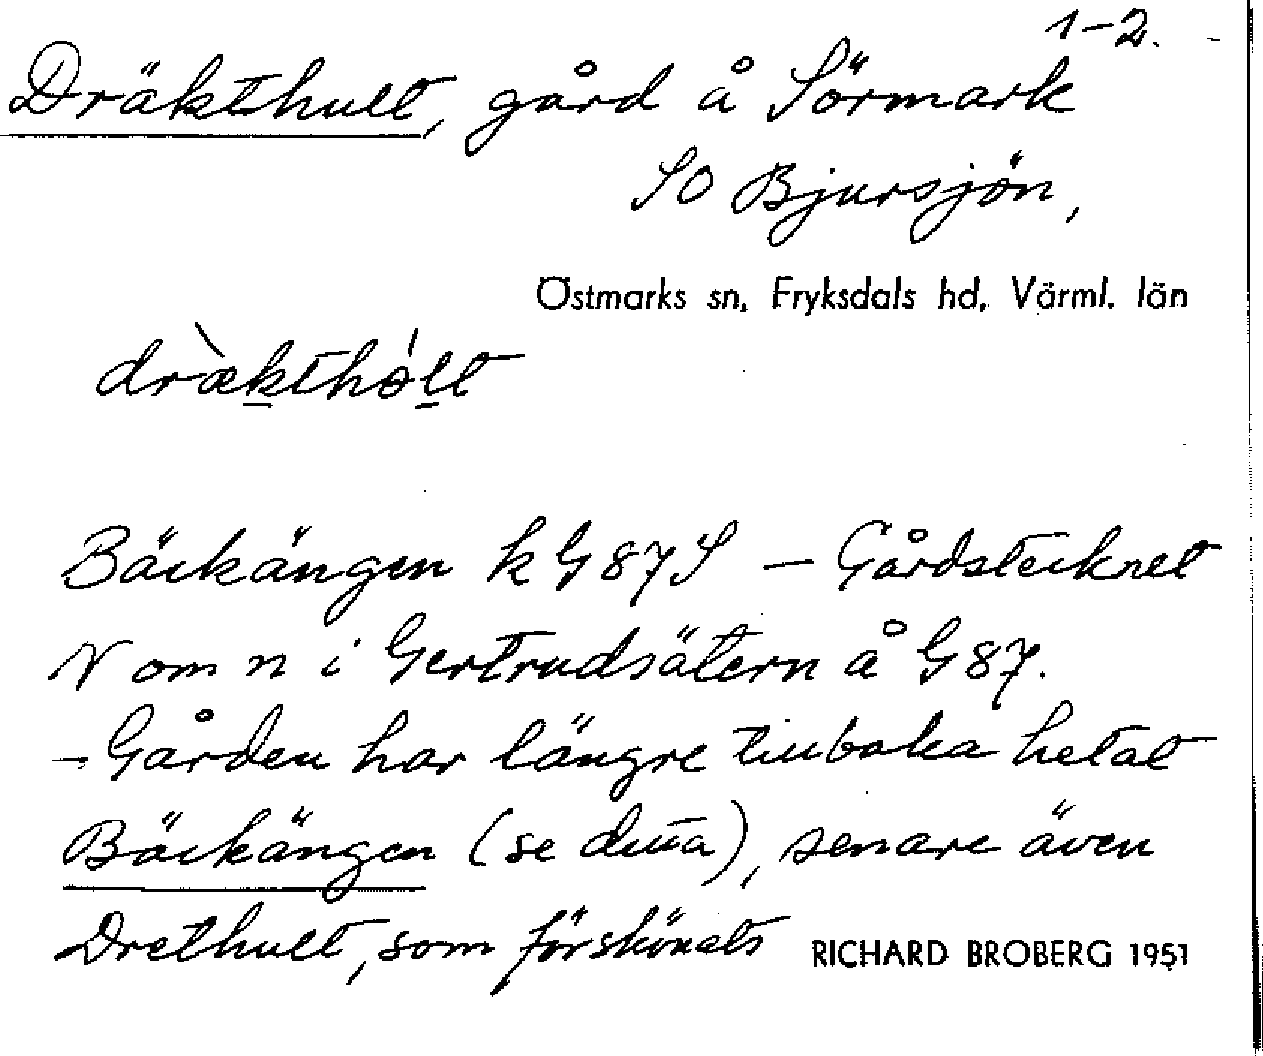 1-2.
Dräkthult, gård å Sörmark
SO Bjursjön,
Östmarks sn, Fryksdals hd, Värml. län
dræ̀kthól̲t
Bäckängen k G 87 S – Gårdstecknet
N om n i Gertrudsätern å G 87.
– Gården har längre tillbaka hetat
Bäckängen (se detta), senare även
Drethult, som förskönats
RICHARD BROBERG 1951